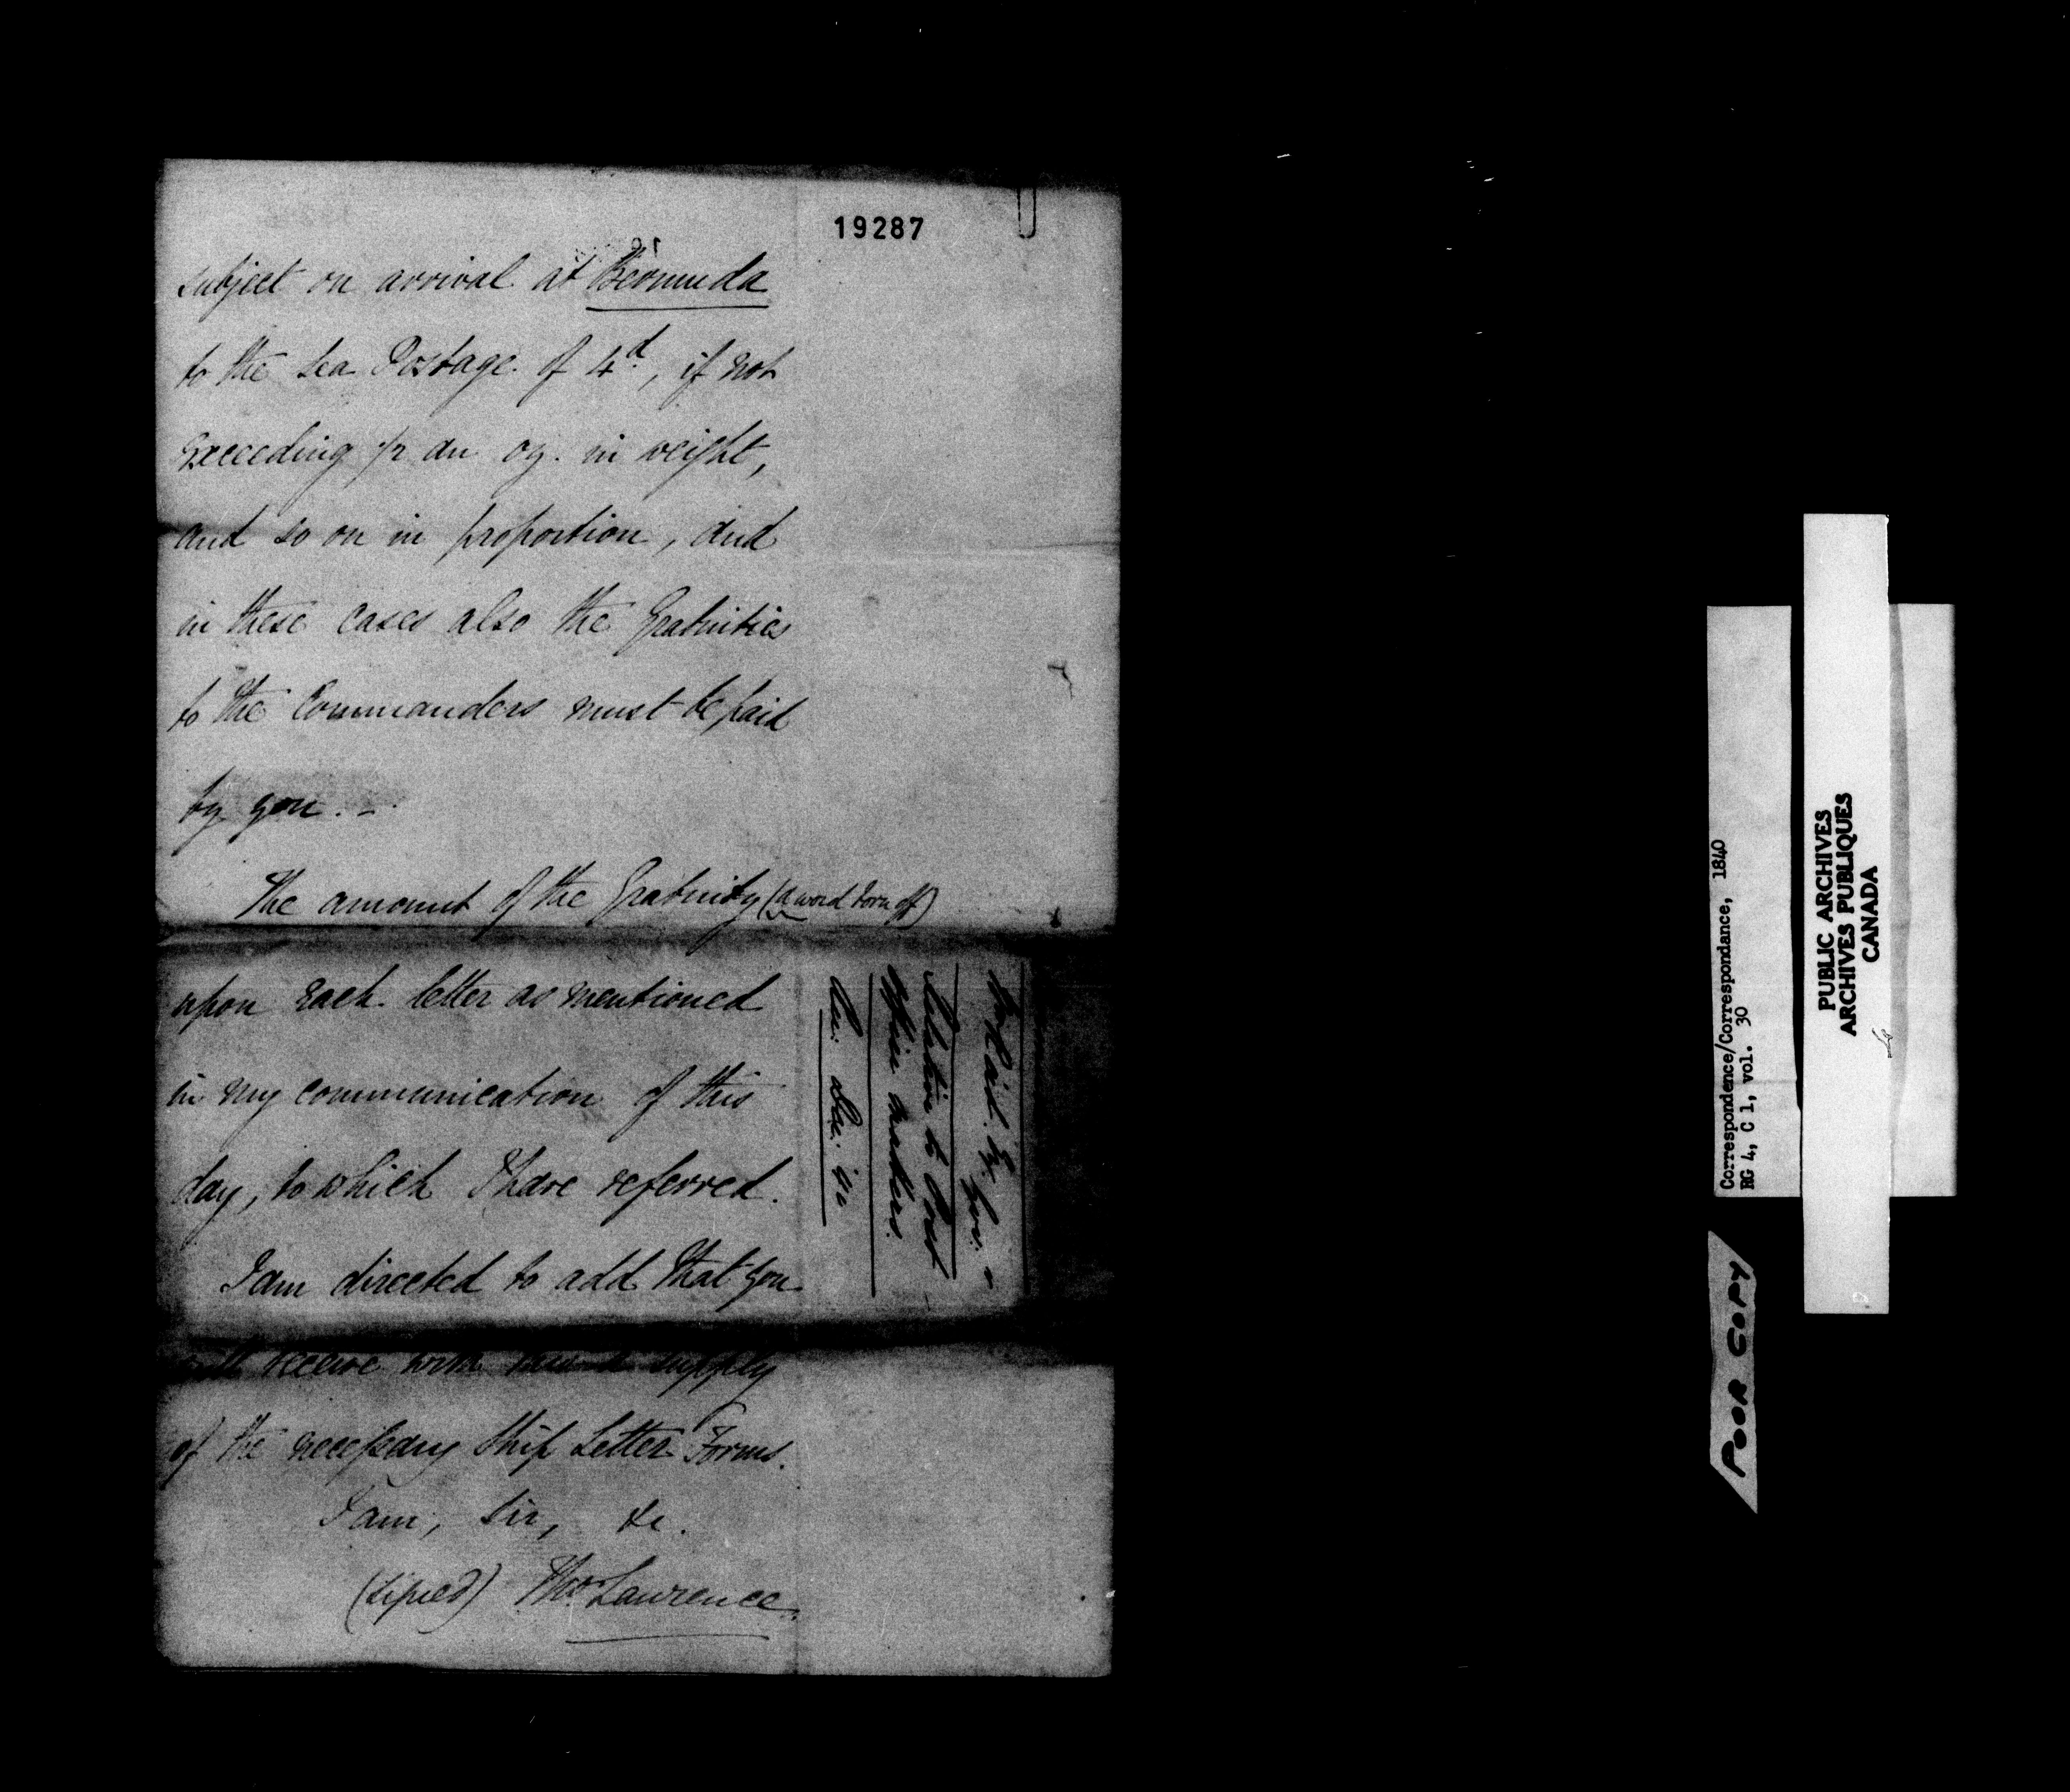 19287
subject on arrival at Bermuda
to the Sea Postage of 4d, if not
exceeding 1/2 an oz. in weight,
and so on in proportion, and
in these cases also the Gratuities
to the Commanders must be paid
by you. -
The amount of the Gratuity (a word torn off)
upon each letter as mentioned
in my communication of this
day, to which I have referred.
I am directed to add that you
will receive with this a supply
of the necessary Ship Letter Forms.
I am, Sir, &c.
(signed) Thos. Lawrence.
relative to Post
Office matters.
Correspondence/Correspondance, 1840
RG 4, C 1, vol. 30
PUBLIC ARCHIVES
ARCHIVES PUBLIQUES
CANADA
POOR COPY